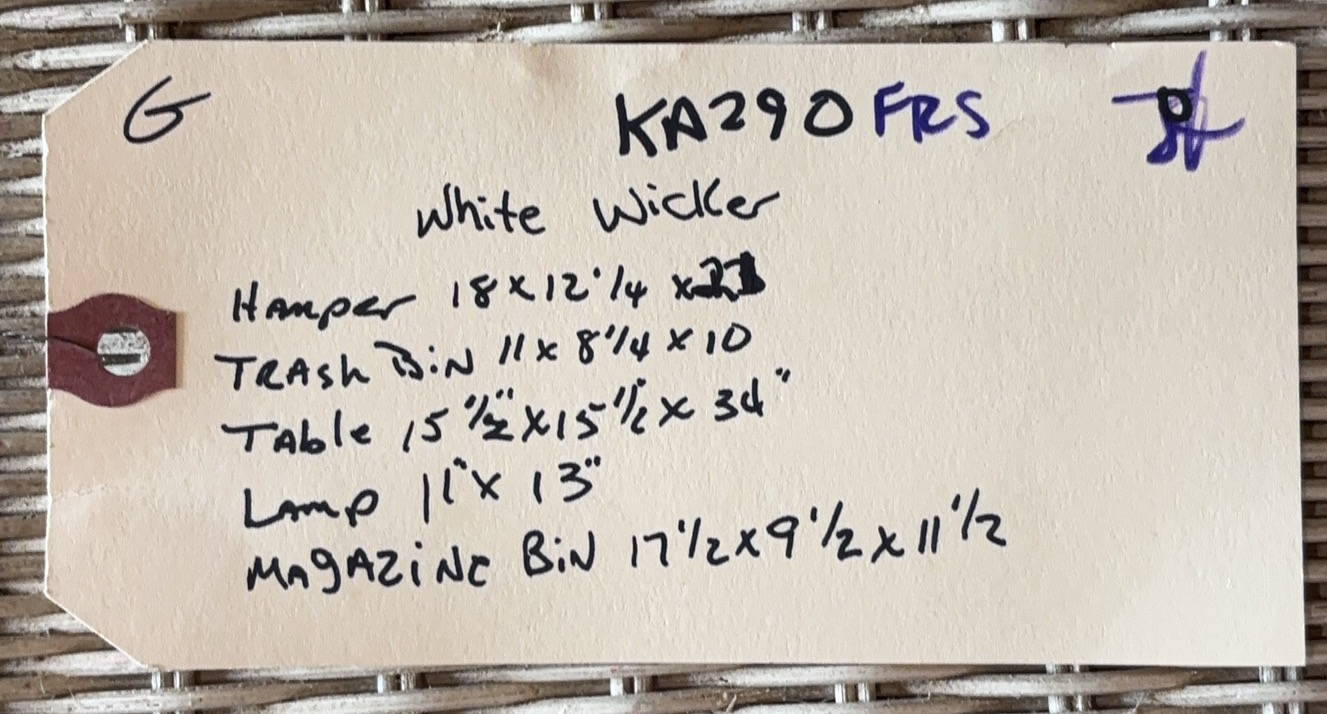 G KA290 FRS
White Wicker
Hamper 18 x 12 1/4 x
TRASH BiN 11 x 8 1/4 x 10
TAble 15 1/2" x 15 1/2" x 34"
Lamp 11" x 13"
MAgAZiNe BiN 17 1/2 x 9 1/2 x 11 1/2